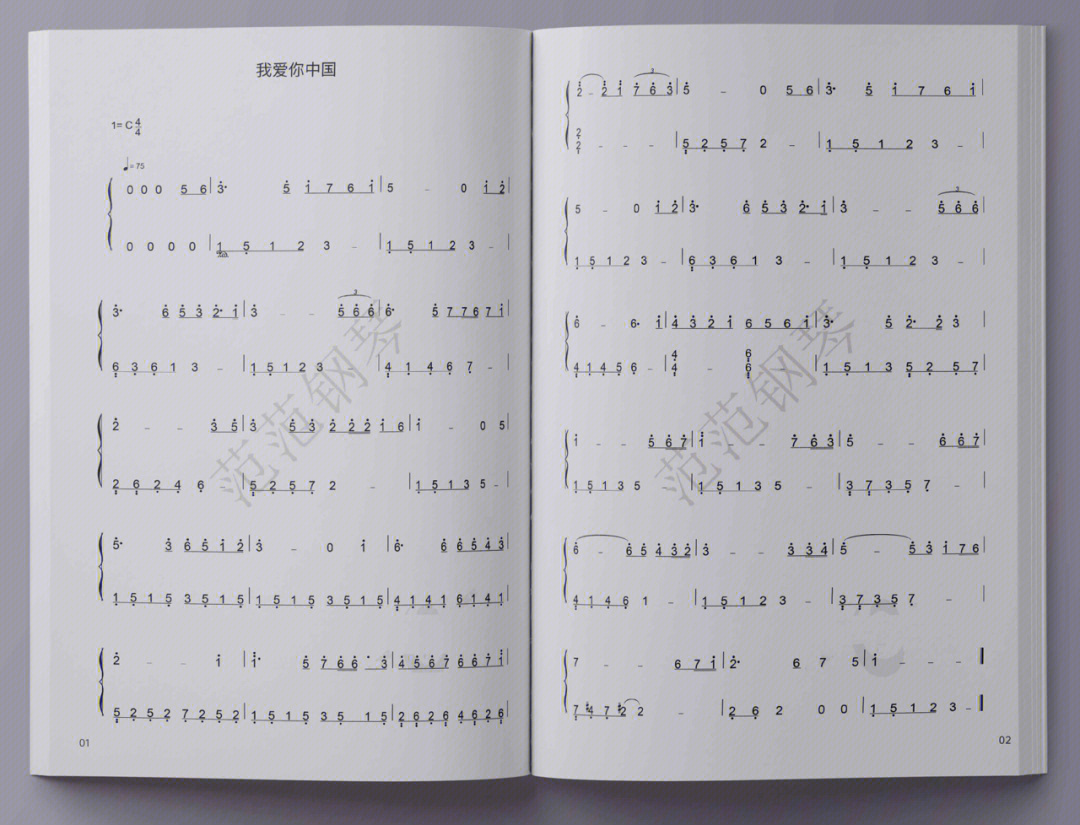 我爱你中国
1= C 4/4
♩= 75
0 0 0 5 6 | 3· 5 1 7 6 1 | 5 – 0 1 2 |
0 0 0 0 | 1 5 1 2 3 – | 1 5 1 2 3 – |
3· 6 5 3 2· 1 | 3 – – 5 6 6 | 6· 5 7 7 6 7 1 |
3
6 3 6 1 3 – | 1 5 1 2 3 | 4 1 4 6 7 – |
2 – – 3 5 | 3 5 3 2 2 2 1 6 | 1 – 0 5 |
2 6 2 4 6 – | 5 2 5 7 2 – | 1 5 1 3 5 – |
5· 3 6 5 1 2 | 3 – 0 1 | 6· 6 6 5 4 3 |
1 5 1 5 3 5 1 5 | 1 5 1 5 3 5 1 5 | 4 1 4 1 6 1 4 1 |
2 – – 1 | 1· 5 7 6 6 · 3 | 4 5 6 7 6 6 7 1 |
5 2 5 2 7 2 5 2 | 1 5 1 5 3 5 1 5 | 2 6 2 6 4 6 2 6 |
01
范范钢琴
3
2 – 2 1 7 6 3 | 5 – 0 5 6 | 3· 5 1 7 6 1 |
2
2 – – – | 5 2 5 7 2 – | 1 5 1 2 3 – |
3
5 – 0 1 2 | 3· 6 5 3 2· 1 | 3 – – 5 6 6 |
1 5 1 2 3 – | 6 3 6 1 3 – | 1 5 1 2 3 – |
6 – 6· 1 | 4 3 2 1 6 5 6 1 | 3· 5 2· 2 3 |
4 6
4 1 4 5 6 – | 4 – 6 – | 1 5 1 3 5 2 5 7 |
1 – – 5 6 7 | 1 – – 7 6 3 | 5 – – 6 6 7 |
1 5 1 3 5 – | 1 5 1 3 5 – | 3 7 3 5 7 – |
6 – – 6 5 4 3 2 | 3 – – 3 3 4 | 5 – 5 3 1 7 6 |
4 1 4 6 1 – | 1 5 1 2 3 – | 3 7 3 5 7 – |
7 – – 6 7 1 | 2· 6 7 5 | 1 – – – |
7 #4 7 #2 2 – | 2 6 2 0 0 | 1 5 1 2 3 – |
02
范范钢琴